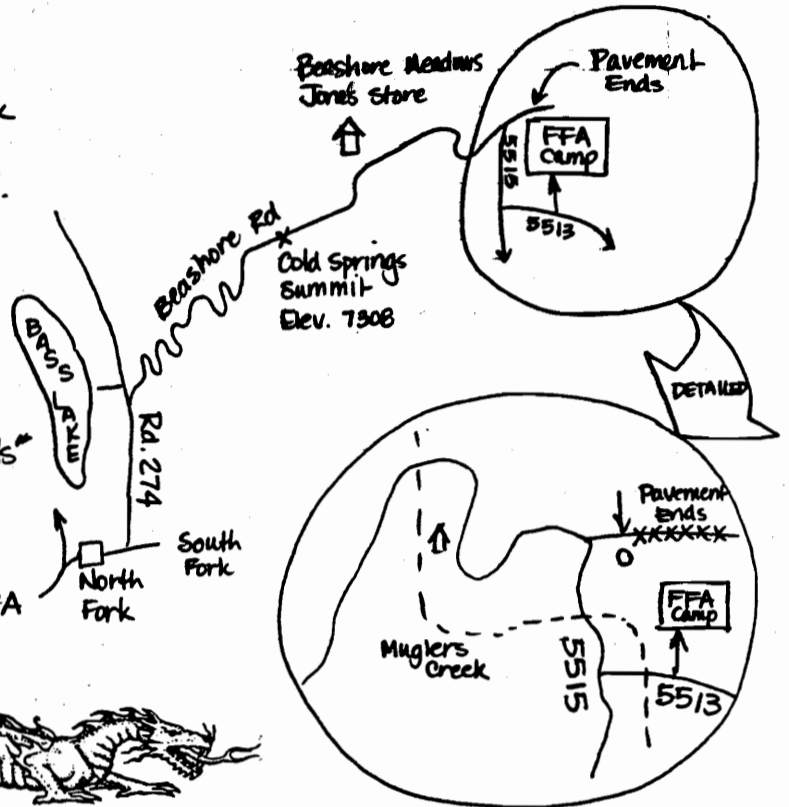 Beashore Meadows
Jones Store
Pavement
Ends
FFA
Camp
5515
5513
Beashore Rd
Cold Springs
Summit
Elev. 7308
BASS LAKE
Rd. 274
DETAILED
South
Fork
North
Fork
Pavement
Ends
FFA
Camp
Muglers
Creek
5515
5513